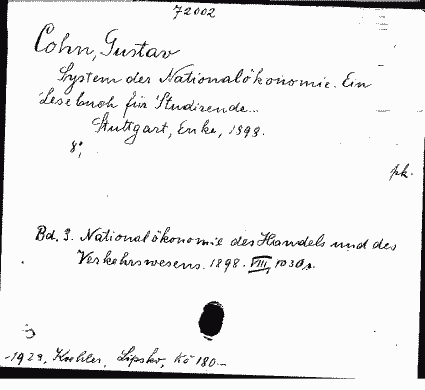 72002
Cohn, Gustav
System der Nationalökonomie. Ein
Lesebuch für Studirende...
Stuttgart, Enke, 1898.
8°,
pk.
Bd. 3. Nationalökonomie des Handels und des
Verkehrswesens. 1898. VIII, 1030 s.
-1929, Koehler, Lipsko, Kč 180.-